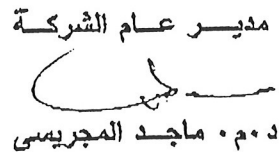 مديـر عـام الشركـة
د.م. ماجـد المجريسي